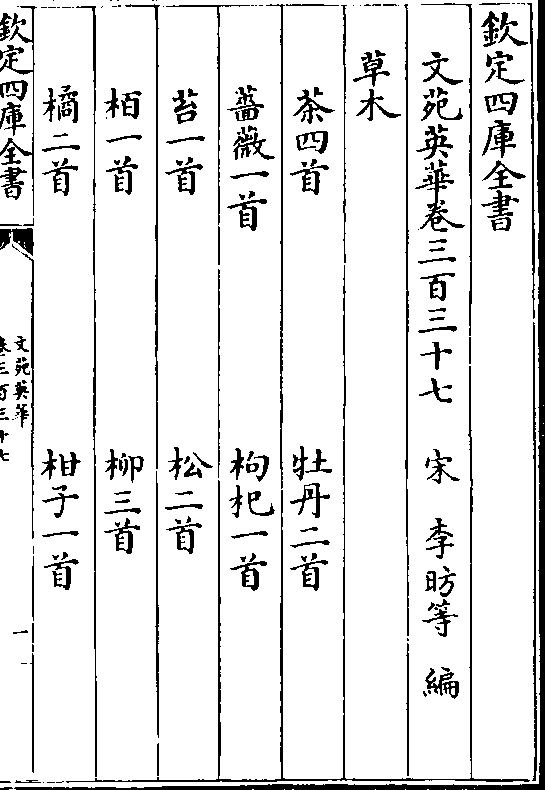 欽定四庫全書
文苑英華卷三百三十七　宋　李昉等　編
草木
茶四首　牡丹二首
薔薇一首　枸杞一首
苔一首　松二首
栢一首　柳三首
橘二首　柑子一首
欽定四庫全書
文苑英華
卷三百三十七
一